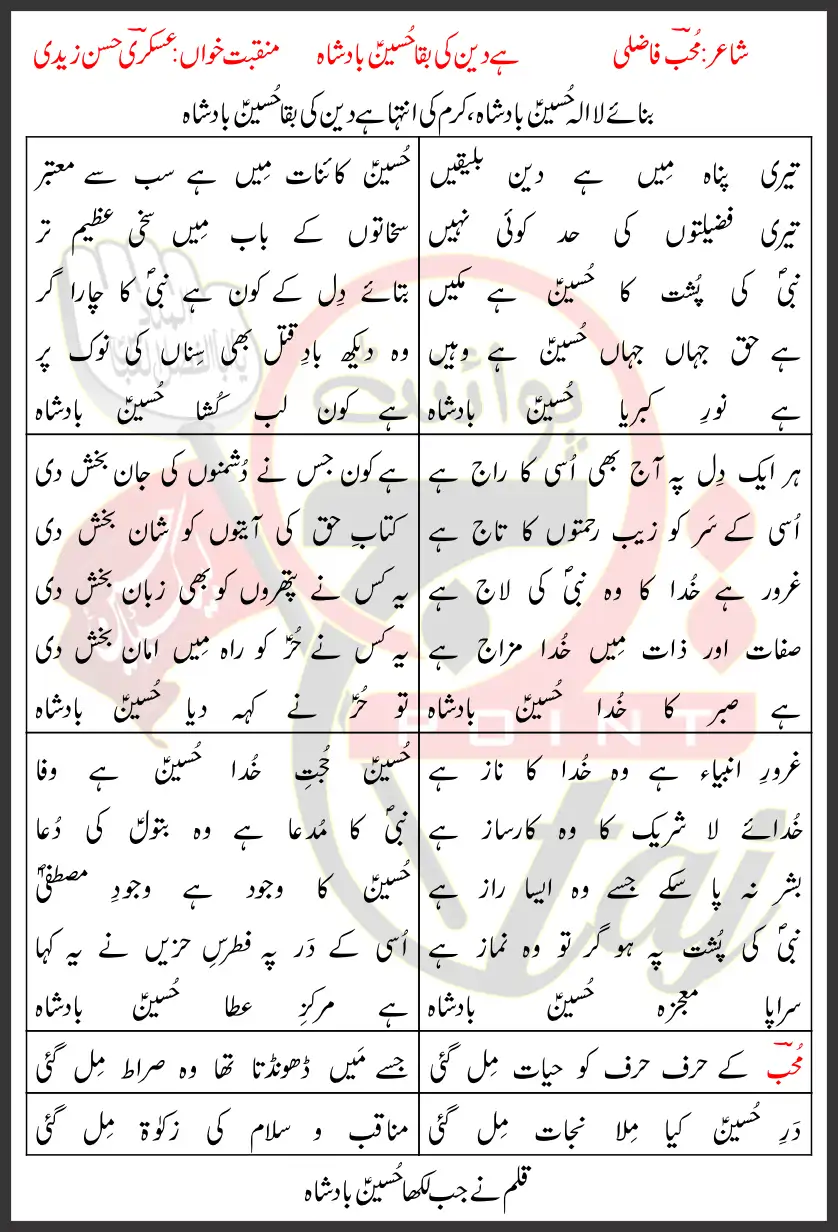 شاعر: مُحبؔ فاضلی
ہے دین کی بقا حُسینؑ بادشاہ
منقبت خواں: عسکریؔ حسن زیدی
بنائے لا الہ حُسینؑ بادشاہ، کرم کی انتہا ہے دین کی بقا حُسینؑ بادشاہ
تیری پناہ مِیں ہے دین بلیقیں
تیری فضیلتوں کی حد کوئی نہیں
نبیؐ کی پُشت کا حُسینؑ ہے مکیں
ہے حق جہاں جہاں حُسینؑ ہے وہیں
ہے نورِ کبریا حُسینؑ بادشاہ
حُسینؑ کائنات مِیں ہے سب سے معتبر
سخاتوں کے باب مِیں سخی عظیم تر
بتائے دِل کے کون ہے نبیؐ کا چارا گر
وہ دیکھ بادِ قتل بھی سِناں کی نوک پر
ہے کون لب کُشا حُسینؑ بادشاہ
ہر ایک دِل پہ آج بھی اُسی کا راج ہے
اُسی کے سَر کو زیب رحمتوں کا تاج ہے
غرور ہے خُدا کا وہ نبیؐ کی لاج ہے
صفات اور ذات مِیں خُدا مزاج ہے
ہے صبر کا خُدا حُسینؑ بادشاہ
ہے کون جس نے دُشمنوں کی جان بخش دی
کتابِ حق کی آیتوں کو شان بخش دی
یہ کس نے پتھروں کو بھی زبان بخش دی
یہ کس نے حُرؑ کو راہ مِیں امان بخش دی
تو حُرؑ نے کہہ دیا حُسینؑ بادشاہ
غرورِ انبیاء ہے وہ خُدا کا ناز ہے
خُدائے لا شریک کا وہ کارساز ہے
بشر نہ پا سکے جسے وہ ایسا راز ہے
نبیؐ کی پُشت پہ ہو گر تو وہ نماز ہے
سراپا معجزہ حُسینؑ بادشاہ
حُسینؑ حُجتِ خُدا حُسینؑ ہے وفا
نبیؐ کا مُدعا ہے وہ بتولؑ کی دُعا
حُسینؑ کا وجود ہے وجودِ مصطفیؐ
اُسی کے دَر پہ فطرسِ حزیں نے یہ کہا
ہے مرکزِ عطا حُسینؑ بادشاہ
مُحبؔ کے حرف حرف کو حیات مِل گئی
جسے مَیں ڈھونڈتا تھا وہ صراط مِل گئی
دَرِ حُسینؑ کیا مِلا نجات مِل گئی
مناقب و سلام کی زکوٰۃ مِل گئی
قلم نے جب لکھا حُسینؑ بادشاہ
پوائنٹ
POINT
taj